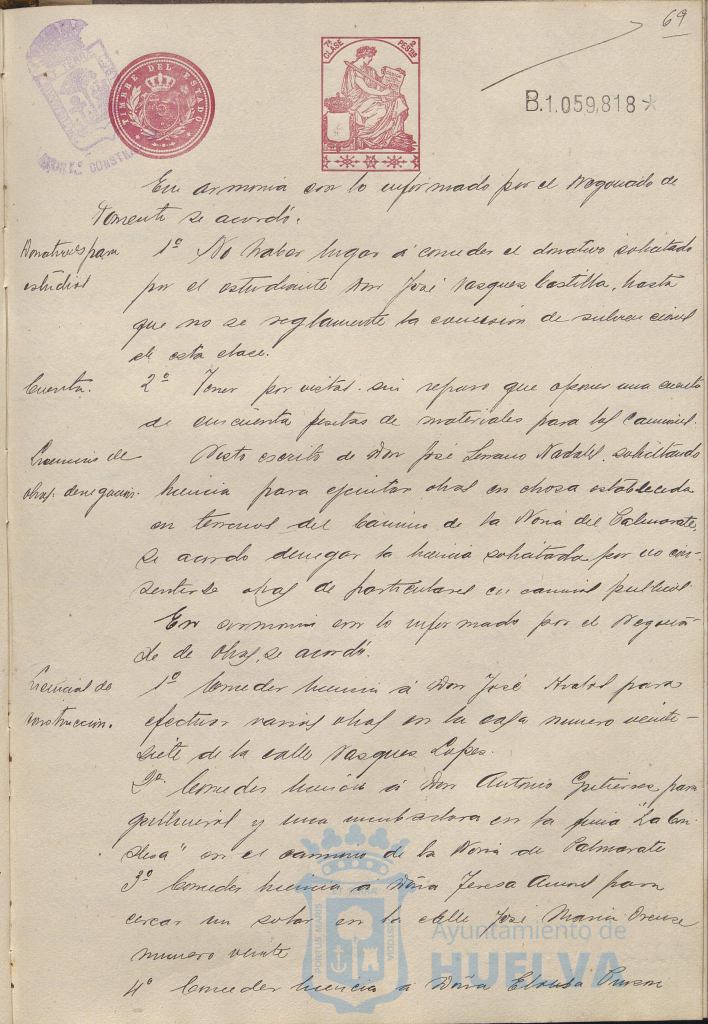 69
TIMBRE DEL ESTADO
7ª CLASE
PESETAS
B.1.059.818*
En armonia con lo informado por el Negociado de
Fomento se acordó.
Donativos para
estudios
1º No haber lugar á conceder el donativo solicitado
por el estudiante Don José Vasques Castilla, hasta
que no se reglamente la concesión de subvenciones
de esta clase.
Cuenta.
2º Tener por vistas sin reparo que oponer una cuenta
de cincuenta pesetas de materiales para los caminos.
Licencias de
obras denegacion.
Visto escrito de Don José Lorenzo Nadales, solicitando
licencia para ejecutar obras en chosa establecida
en terrenos del Camino de la Noria del Palmarate,
se acordo denegar la licencia solicitada por no con-
sentirse obras de particulares en caminos publicos.
En armonia con lo informado por el Negocia-
do de Obras, se acordó.
Licencias de
construccion.
1º Conceder licencia á Don José para
efectuar varias obras en la casa numero veinte-
siete de la calle Vasques Lopes.
2º Conceder licencia á Don Antonio Gutierres para
y una en la finca "La
" en el camino de la Noria de Palmarate
3º Conceder licencia a Doña Teresa para
cercar un solar en la calle José Maria Orense
numero veinte
4º Conceder licencia á Doña
PORTUS MARIS
CUSTODIA
Ayuntamiento de
HUELVA